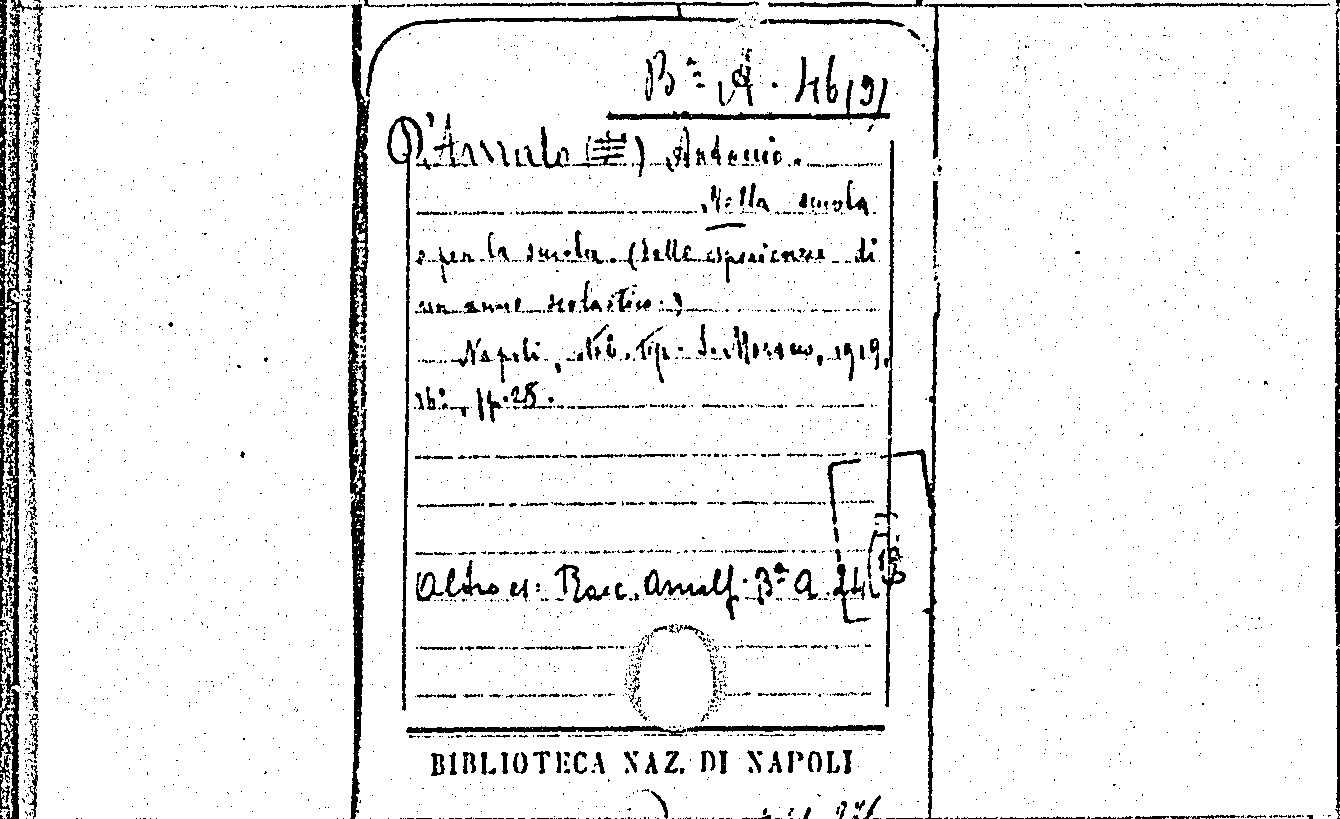 Bª A. 46(9)
D'Amato () Antonio.
Nella scuola
e per la scuola. (Dalle esperienze di
un anno scolastico.)
Napoli, Stab. Tip. S. Morano, 1919.
16°, pp. 28.
Altro es: Racc. Amalf. Bª A 24(
BIBLIOTECA NAZ. DI NAPOLI